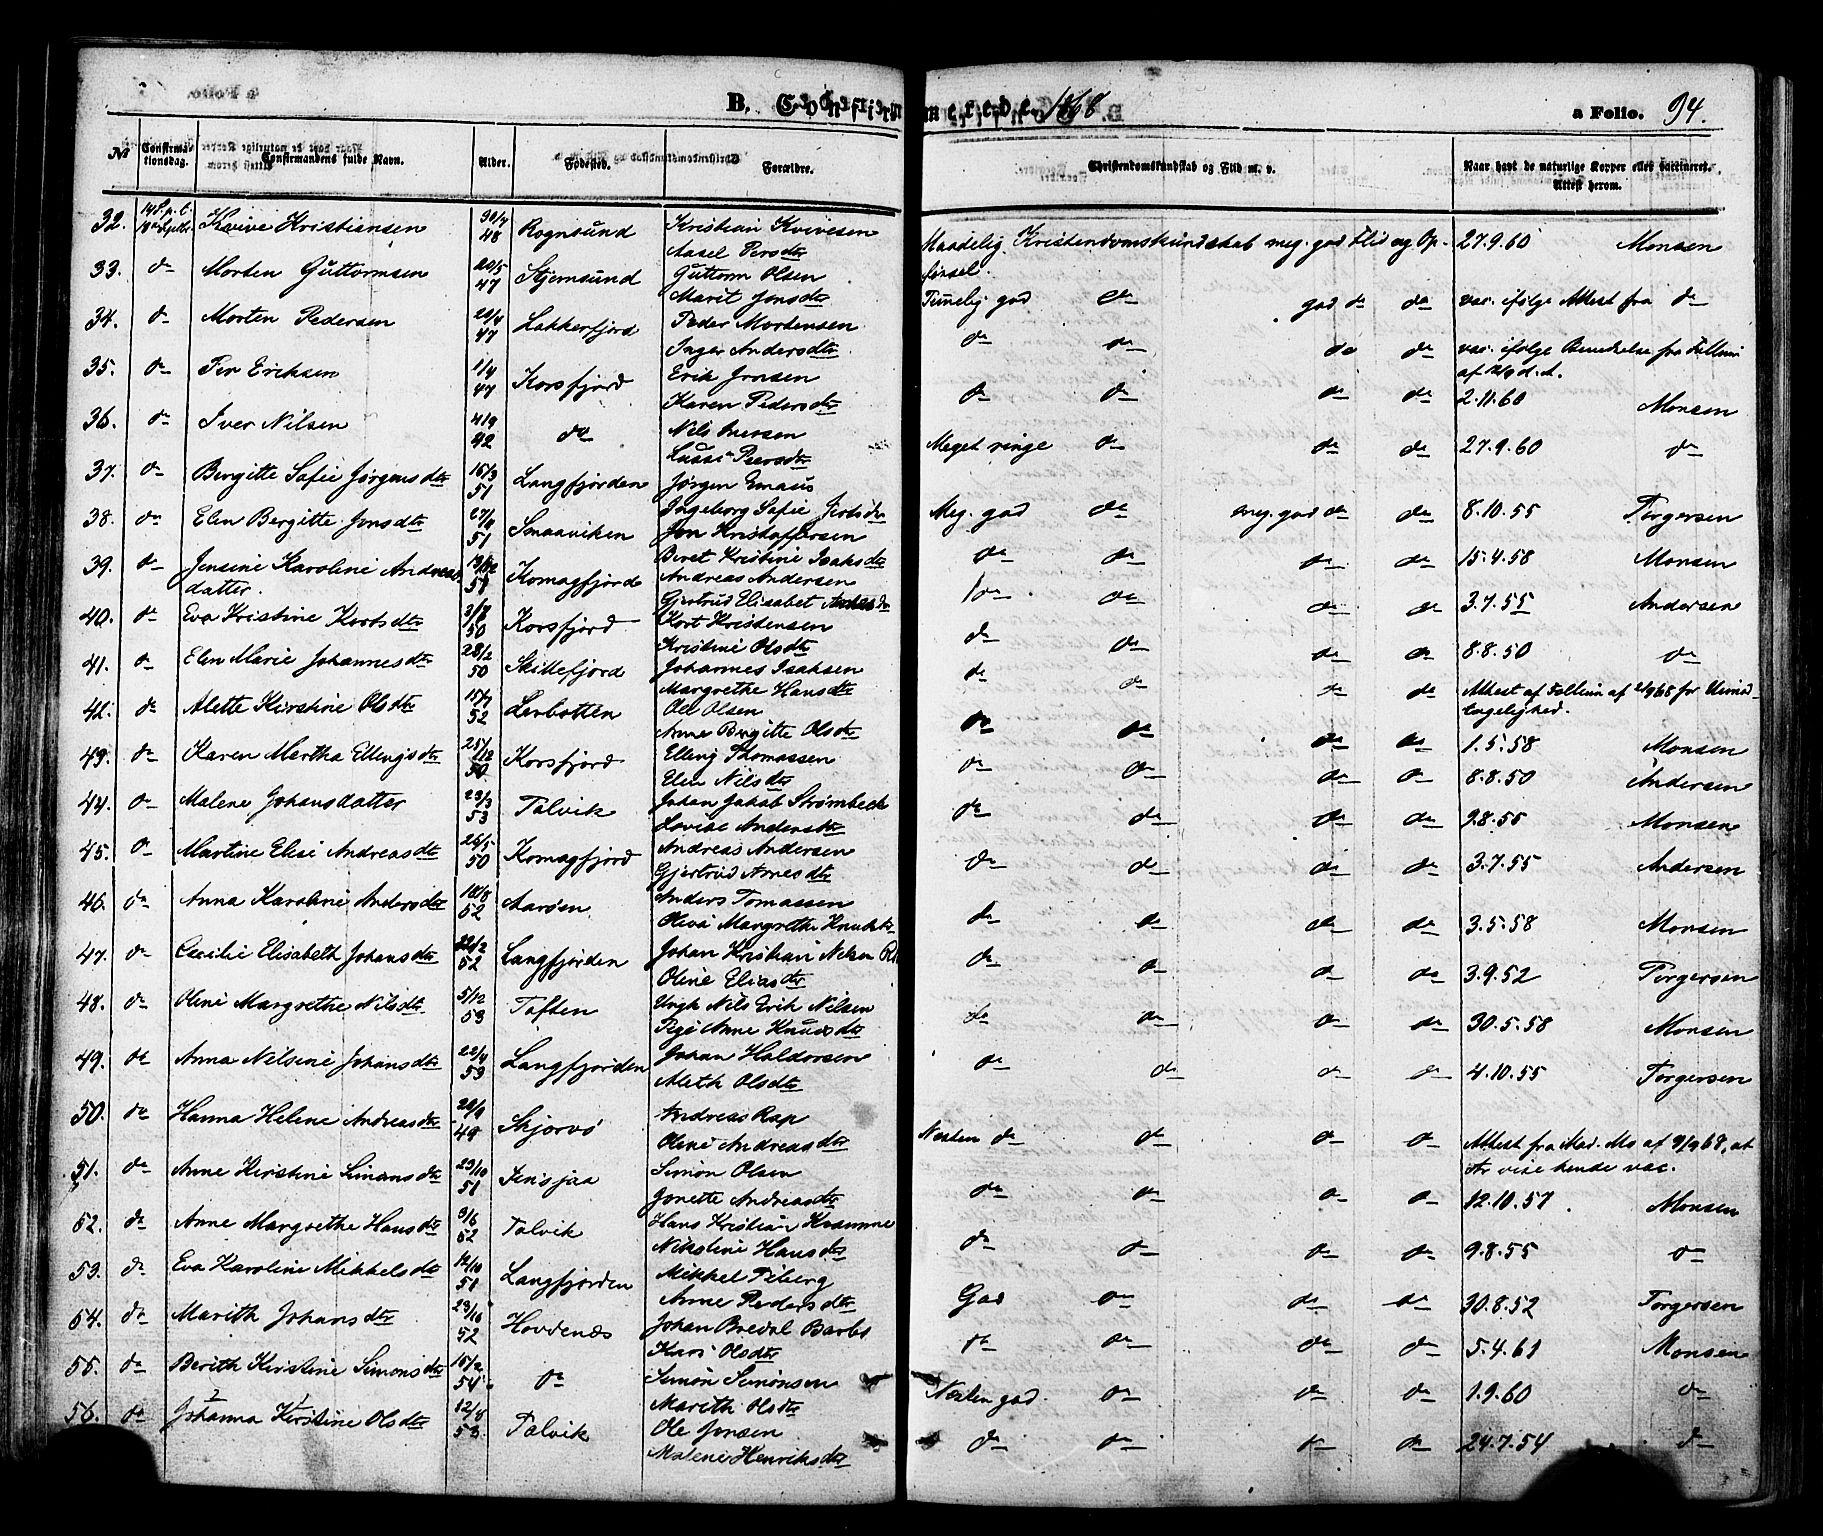 B. Confirmerede. 1868 a Folio. 94.
№ Confirmationsdag. Confirmandens fulde Navn. Alder. Fødested. Forældre. Christendomskundskab og Flid m. v. Naar havt de naturlige Kopper eller vaccineret. Attest herom.
32. Kvive Kristiansen 48 Rognsund Kristian Kvivesen Maadelig Kristendomskundskab meg. god Flid og Op- 27.9.60 Monsen
Aasel Persdtr førsel.
33. do Morten Guttormsen 20/5 47 Stjernsund Guttorm Olsen Temelig god do god do do vac. ifølge Attest fra do
Marit Jonsdtr
34. do Morten Pedersen 47 Lakkerfjord Peder Mortensen do do do do vac. ifølge
Inger Andersdtr
35. do Per Eriksen 1/4 47 Korsfjord Erik Jonsen do do do do 2.11.60 Monsen
Karen Pedersdtr
36. do Iver Nilsen 4/9 42 do Nils Iversen Meget ringe do do do 27.9.60 do
Persdtr
37. do Bergitte Sofie Jørgensdtr 16/3 51 Langfjorden Jørgen Emaus Meg. god do meg. god do do 8.10.55 Torgersen
Ingeborg Sofie
38. do Elen Bergitte Jonsdtr 51 Smaaviken Jon Kristoffersen do do do do 15.4.58 Monsen
Beret Kristine Isaksdtr
39. do Jensine Karoline Andreas- 51 Komagfjord Andreas Andersen do do do do 3.7.55 Andersen
datter. Gjertrud Elisabet
40. do Eva Kristine Kortsdtr 50 Korsfjord Kort Kristensen do do do do 8.8.50 do
Kristine Olsdtr
41. do Elen Marie Johannesdtr 28/2 50 Skillefjord Johannes Isaksen do do do do Attest af
Margrethe Hansdtr
42. do Alette Kirstine Olsdtr 15/7 52 Lerbotten Ole Olsen do do do do 1.5.58 Monsen
Anne Birgitte Olsdtr
43. do Karen Martha Ellingsdtr 25/12 50 Korsfjord Elling Thomassen do do do do 8.8.50 Andersen
Elen Nilsdtr
44. do Malene Johansdatter 23/3 53 Talvik Johan Jakob Strømbeck do do do do 9.8.55 Monsen
Lovise Andersdtr
45. do Martine Elise Andreasdtr 26/5 50 Komagfjord Andreas Andersen do do do do 3.7.55 Andersen
Gjertrud Arnesdtr
46. do Anna Karoline Andersdtr 18/8 52 Aarøen Anders Tomassen do do do do 3.5.58 Monsen
Oliva Margrethe
47. do Cecilie Elisabeth Johansdtr 22/2 52 Langfjorden Johan Kristian Nilsen do do do do 3.9.52 Torgersen
Oline Eliasdtr
48. do Oline Margrethe Nilsdtr 5/12 53 Toften Ungk Nils Erik Nilsen do do do do 30.5.58 Monsen
Pige Anne Knudsdtr
49. do Anna Nilsine Johansdtr 22/4 53 Langfjorden Johan Haldorsen do do do do 4.10.55 Torgersen
Aleth Olsdtr
50. do Hanna Helene Andreasdtr 49 Skjervø Andreas Rap Nesten do do do do Attest fra Mad. Mo af 9/9 68, at
Oline Andreasdtr
51. do Anne Kirstine Simonsdtr 23/10 51 Simon Olsen do do do do 12.10.57 Monsen
Jonette Andreasdtr
52. do Anne Margrethe Hansdtr 3/6 52 Talvik Hans Kristian do do do do 9.8.55 do
Nikoline Hansdtr
53. do Eva Karoline Mikkelsdtr 12/10 51 Langfjorden Mikkel Tiberg God do do do 30.8.52 Torgersen
Anne Pedersdtr
54. do Marith Johansdtr 23/10 52 Hovdenæs Johan Bredal do do do do 5.4.61 Monsen
Kari Olsdtr
55. do Berith Kirstine Simonsdtr 15/2 54 do Simon Simonsen Nesten god do do do 1.9.60 do
Marith Olsdtr
56. do Johanna Kirstine Olsdtr 12/8 53 Talvik Ole Jonsen do do do do 24.7.54 do
Malene Henriksdtr